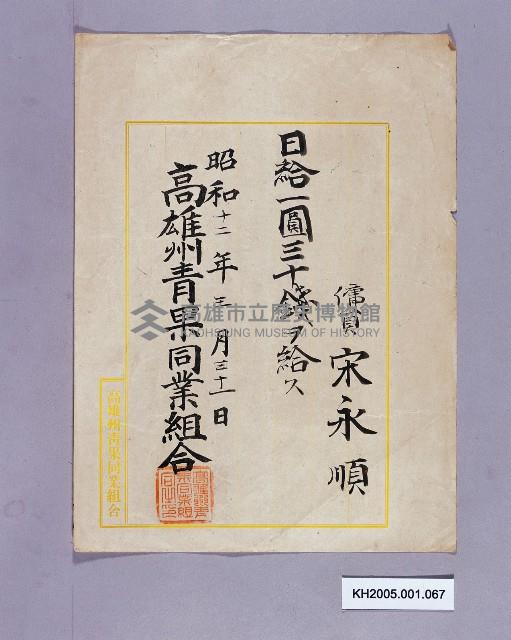 傭員 宋永順
日給一圓三十錢ヲ給ス
昭和十二年三月三十一日
高雄州青果同業組合
高雄州青果同業組合
高雄市立歷史博物館
KAOHSIUNG MUSEUM OF HISTORY
KH2005.001.067